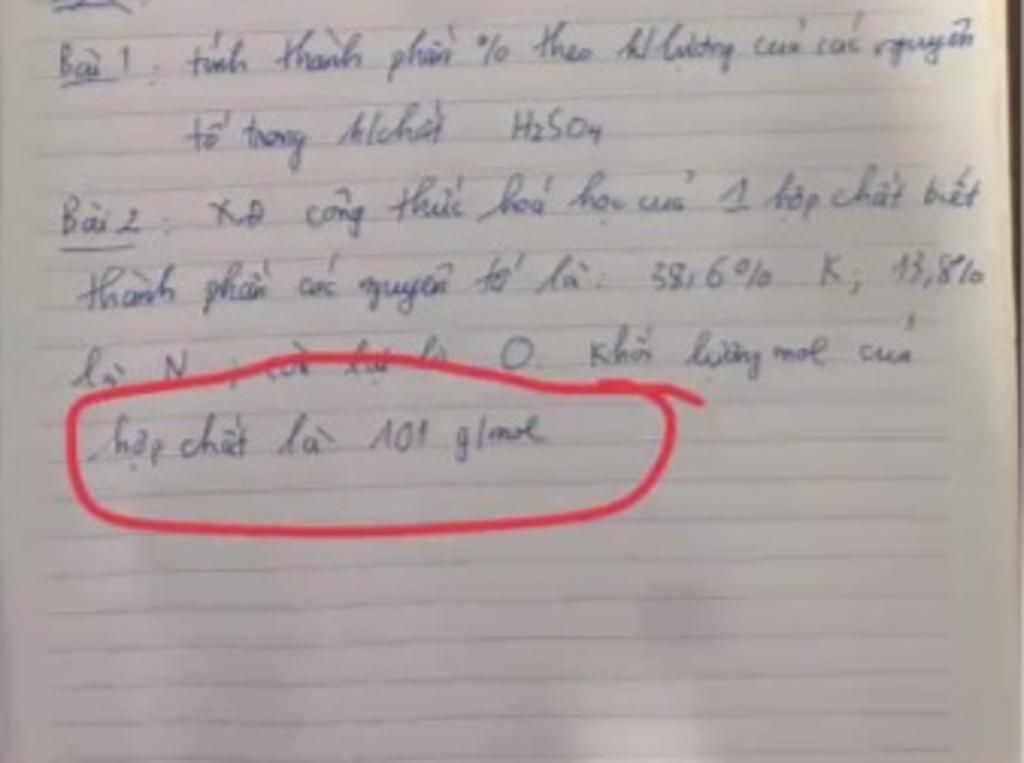 Bài 1 : tính thành phần % theo k/lượng của các nguyên
tố trong h/chất H₂SO₄
Bài 2 : XĐ công thức hoá học của 1 hợp chất biết
thành phần các nguyên tố là : 38,6% K; 13,8%
là N ; còn lại là O. Khối lượng mol của
hợp chất là 101 g/mol